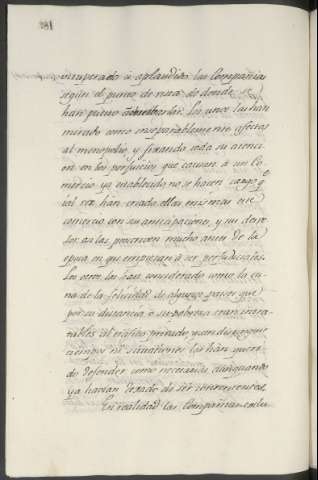 281
vituperado ú aplaudido las Compañias
segun el punto de vista de donde se
han puesto á considerarlas. Los unos las han
mirado como inseparablemente afectas
al monopolio, y fixando toda su atencion
en los perjuicios que causan á un Co
mercio ya establecido, no se hacen cargo q.e
tal vez han creado ellas mismas ese
comercio con sus anticipaciones, y sus
las mucho antes de la
epoca en que empiezan á ser perjudiciales.
Los otros los han considerado como la cu
na de la felicidad de algunos paises que
por su distancia ó su pobreza eran intra
tables al trafico privado, y con
las han queri
do defender como necesarias, aun quando
ya havian dexado de ser convenientes.
En realidad las Compañias exclu